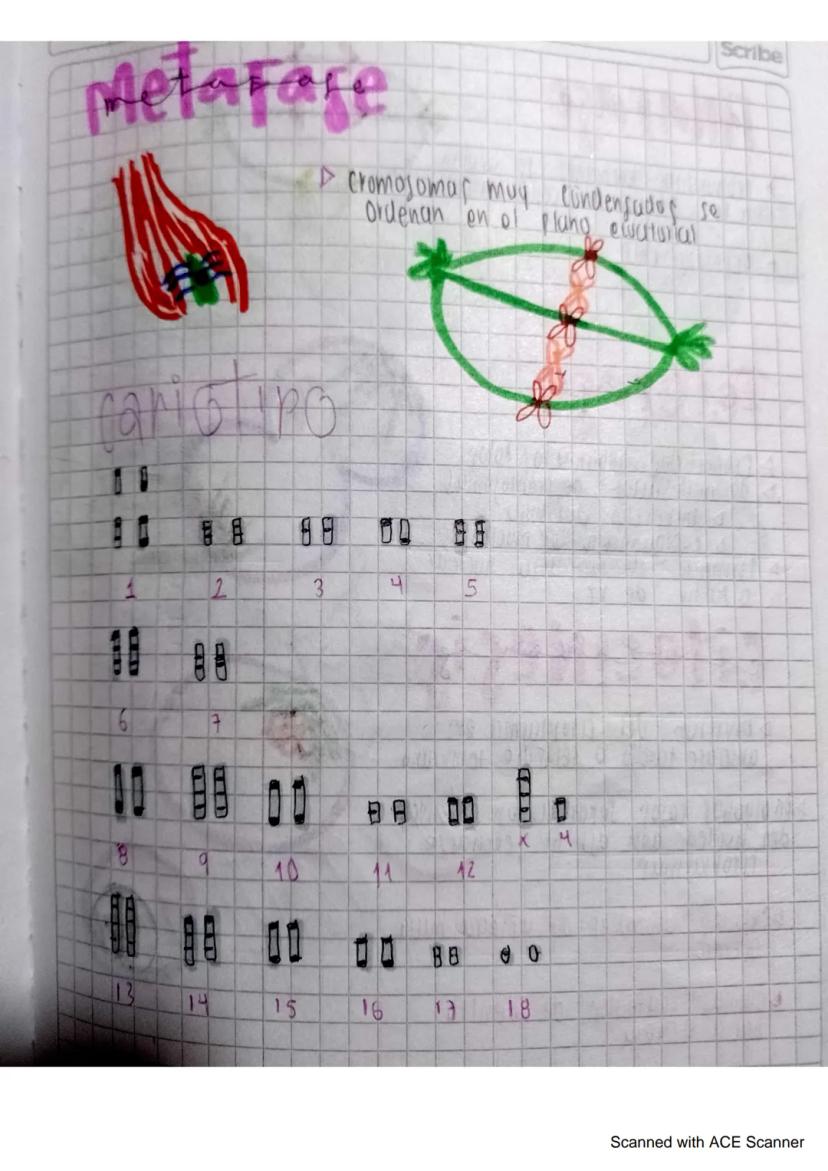 Scribe
metafase
▷ cromosomas muy condensados se
ordenan en el plano ecuatorial
cariotipo
1 2 3 4 5
6 7
x 4
8 9 10 11 12
13 14 15 16 17 18
Scanned with ACE Scanner